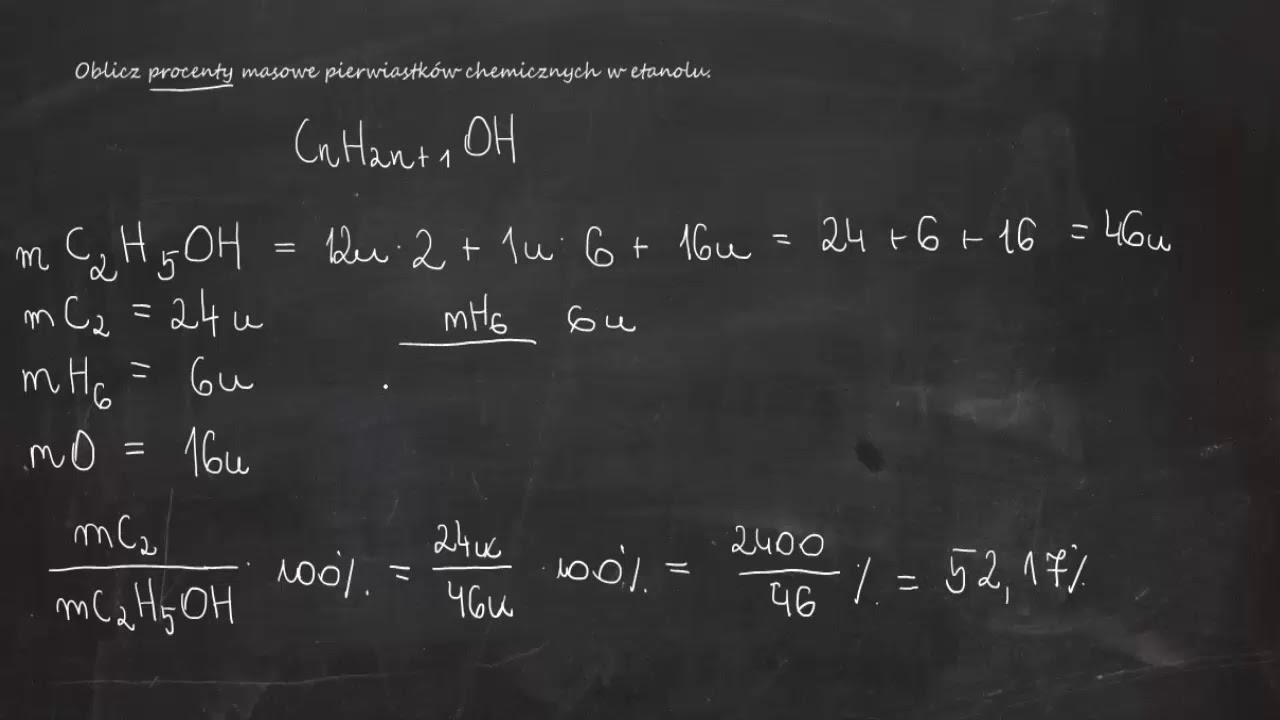 Oblicz procenty masowe pierwiastków chemicznych w etanolu.
CnH2n+1OH
m C2H5OH = 12u · 2 + 1u · 6 + 16u = 24 + 6 + 16 = 46u
mC2 = 24u
mH6 6u
mH6 = 6u
mO = 16u
mC2 / mC2H5OH · 100% = 24u / 46u · 100% = 2400 / 46 % = 52,17%